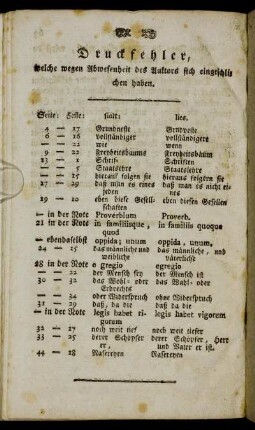 Druckfehler,
welche wegen Abwesenheit des Auktors sich eingeschli
chen haben.
Seite: Zeile: statt: lies.
4 — 17 Grundveste
6 — 16 vollständiger vollständigere
— — 22 wie wenn
9 — 22 Freyheitsbäume Freyheitsbaum
13 — 1 Schrif- Schriften
— — 5 Staatslehre Staatslehre
— — 15 hierauf folgen sie hieraus folgern sie
17 — 29 daß man es eines jeden daß man es nicht eines
19 — 10 eben diese Gesellschaften eben diesen Gesellen
— in der Note Proverbium Proverb.
21 in der Note in familiisque, quod in familiis, quod
— ebendaselbst oppida; unum oppida, unum.
24 — 15 das männliche und weibliche das männliche, und väterliche
28 in der Note e gregio egregio
— — 22 der Mensch sey der Mensch ist
30 — 32 das Wahl- oder Erbrechts das Wahl- oder
— — 34 oder Widerspruch ohne Widerspruch
31 — 29 daß, da die daß die
— in der Note legis habet rigorum legis habet vigorem
32 — 27 noch weit tief noch weit tiefer
33 — 25 derer Schöpfer er derer Schöpfer, Herr und Vater er ist.
44 — 18 Nasereyen